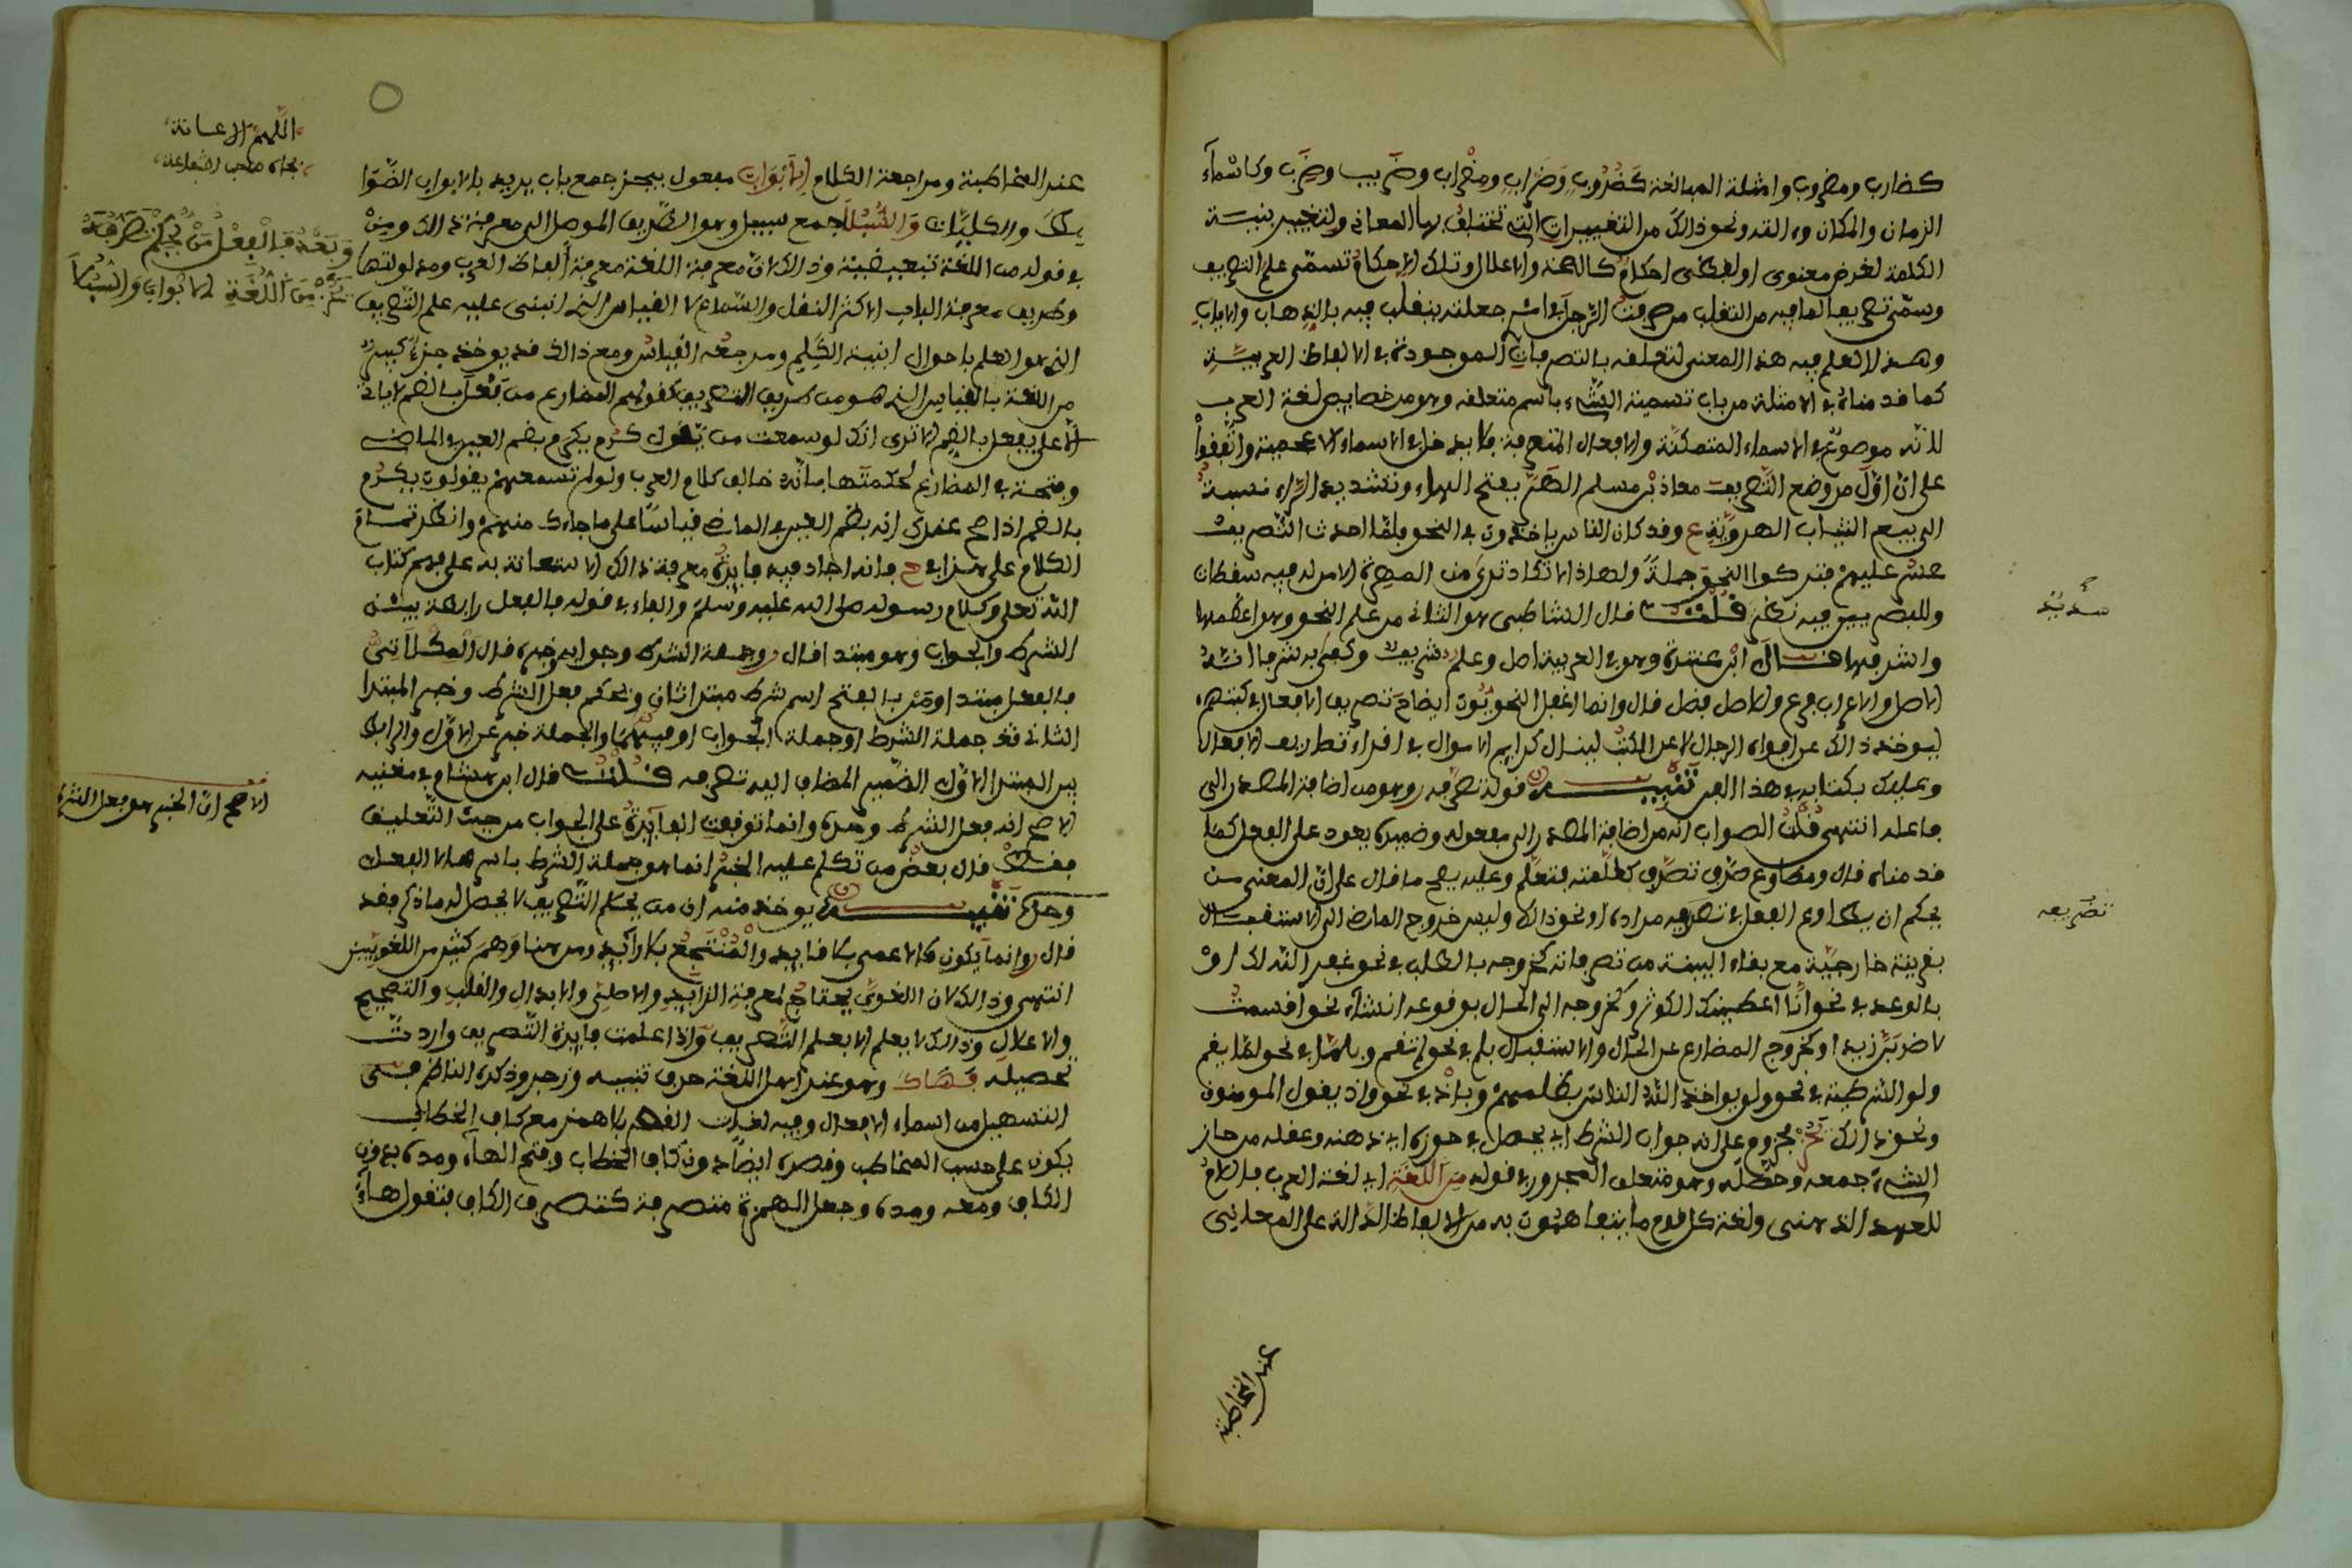 كضارب ومضروب وامثلة المبالغة كضروب وضراب ومضراب وضريب وضرب وكاسماء
الزمان والمكان والالة ونحو ذالك من التغييرات التي تختلف بها المعاني ولتغيير بنية
الكلمة لغرض معنوي او لفظي احكام كالصحة والاعلال وتلك الاحكام تسمى علم التصريف
وسمي تصريفا لما فيه من التقلب من صرفت الرجل في امره جعلته يتقلب فيه بالذهاب والاياب
وهذا العلم فيه هذا المعنى لتعلقه بالتصرفات الموجودة في الالفاظ العربية
كما قدمناه في الامثلة من باب تسمية الشيء باسم متعلقه وهو من خصايص لغة العرب
لانه موضوع في الاسماء المتمكنة والافعال المتصرفة فلا يدخل في الاسماء الاعجمية واتفقوا
على ان اول من وضع التصريف معاذ بن مسلم الهرا بفتح الهاء وتشديد الراء نسبة
الى بيع الثياب الهروية ع وقد كان الناس ياخذون في النحو فلما احدث التصريف
عسر عليهم فتركوا النحو جملة ولهاذا لا تكاد ترى من المهرة الا من له فيه سقطات
وللبصريين فيه نظر قلت قال الشاطبي هو الثاني من علم النحو وهو اعظمها
واشرفها قال ابن عنترة وهو في العربية اصل وعلم شريف وكفى به شرفا انه
الاصل والاعراب فرع وللاصل فضل قال وانما اغفل النحويون ايضاح تصريف الافعال في كتبهم
ليوخذ ذالك عن افواه الرجال لا عن الكتب
وعليك بكتابه في هذا الفن تنبيه قوله تصرفه وهو من اضافة المصدر الى
فاعله انتهى قلت الصواب انه من اضافة المصدر الى مفعوله وضميره يعود على الفعل كما
قدمناه قال ومطاوع صرف تصرف كعلمته فتعلم وعليه يصح ما قال على ان المعنى من
يحكم ان يطاوع الفعل في تصريفه مراده او نحو ذالك وليس خروج الماضي الى الاستقبال
بقرينة خارجية مع بقاء البنية من تصرفاته كخروجه بالطلب في نحو غفر الله لك او
بالوعد في نحو انا اعطيناك الكوثر وكخروجه الى الحال بوقوعه انشاء نحو اقسمت
لاضربن زيدا وكخروج المضارع عن الحال والاستقبال بلم في نحو لم تقم وبلما في نحو لما يقم
ولو الشرطية في نحو ولو يواخذ الله الناس بظلمهم وباذ في نحو واذ يقول المومنون
ونحو ذالك يحز مجزوم على انه جواب الشرط اي يحصل في حوزه اي ذهنه وعقله من حاز
الشيء جمعه وحصله وهو متعلق المجرور في قوله من اللغة اي لغة العرب فاللام
للعهد الذهني ولغة كل قوم ما يتفاهمون به من الالفاظ الدالة على المعاني
سديد
تصريفه
عند المخاطبة
اللهم الاعانة
عند المخاطبة ومراجعة الكلام الابواب مفعول يحز جمع باب يريد بالابواب الضوا
بط والكليات والسبلا جمع سبيل وهو الطريق الموصل الى معرفة ذالك ومن
في قوله من اللغة تبعيضية وذالك ان معرفة اللغة معرفة الفاظ العرب ومدلولتها
وطريق معرفة الباب الاكثر النقل والسماع لا القياس الذي انبنى عليه علم التصريف
الذي هو العلم باحوال ابنية الكلم ومرجعه القياس ومع ذالك قد يوخذ جزء كبير
من اللغة بالقياس الذي هو من طريق التصريف كقولهم المضارع من فعل بالضم لا ياتي
الا على يفعل بالضم الا ترى انك لو سمعت من يقول كرم يكرم بضم العين في الماضي
وفتحه في المضارع لحكمت بانه خالف كلام العرب ولو لم تسمعهم يقولون يكرم
بالضم اذا صح عندك انه بضم العين في الماضي قياسا على ما جاءك منهم وانظر تمام
الكلام على هذا في ح فانه اجاد فيه فايدة معرفة ذالك الاستعانة به على فهم كتاب
الله تعلى وكلام رسوله صلى الله عليه وسلم والفاء في قوله فالفعل رابطة بين
الشرط والجواب وهو مبتدا قال وجملة الشرط وجوابه خبره قال المكلاتي
فالفعل مبتدا ومن بالفتح اسم شرط مبتدا ثان ويحكم فعل الشرط وخبر المبتدا
الثاني قد جملة الشرط او جملة الجواب او هما والجملة خبر عن الاول والرابط
بين المبتدا الاول الضمير المضاف اليه تصرفه قلت قال ابن هشام في مغنيه
الاصح انه فعل الشرط وحده وانما توقفت الفايدة على الجواب من حيث التعليق
فقط قال بعض من تكلم عليه الخبر انما هو جملة الشرط باسرها لا الفعل
وحده تنبيه يوخذ منه ان من لم يحكم التصريف لا يحصل له ما ذكر فقد
قال وانما يكون كالاعمى بلا قايد والمنتجع بلا رايد ومن هنا وهم كثير من اللغويين
انتهى وذالك لان اللغوي يحتاج لمعرفة الزايد والاصلي والابدال والقلب والتصحيح
والاعلال وذالك لا يعلم الا بعلم التصريف واذا علمت فايدة التصريف واردت
تحصيله فهاك وهو عند اهل اللغة حرف تنبيه وزجر وذكره الناظم في
التسهيل من اسماء الافعال وفيه لغات القصر بلا همز مع كاف الخطاب
يكون على حسب المخاطب وقصره ايضا دون كاف الخطاب وفتح الهاء ومده بدون
الكاف ومعه ومده وجعل الهمزة متصرفة كتصرف الكاف فتقول هاء
وبعد فالفعل من يحكم تصرفه
يحز من اللغة الابواب والسبلا
الاصح ان الخبر هو فعل الشرط